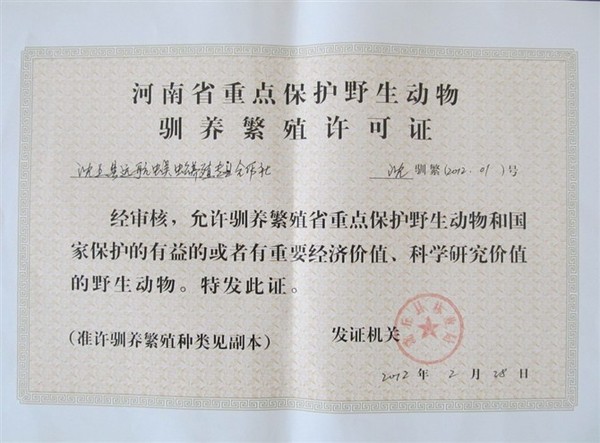 河南省重点保护野生动物
驯养繁殖许可证
沈丘县远航蜈蚣养殖专业合作社
沈 驯繁(2012.01)号
经审核，允许驯养繁殖省重点保护野生动物和国
家保护的有益的或者有重要经济价值、科学研究价值
的野生动物。特发此证。
(准许驯养繁殖种类见副本)
发证机关
沈丘县林业局
2012年2月28日